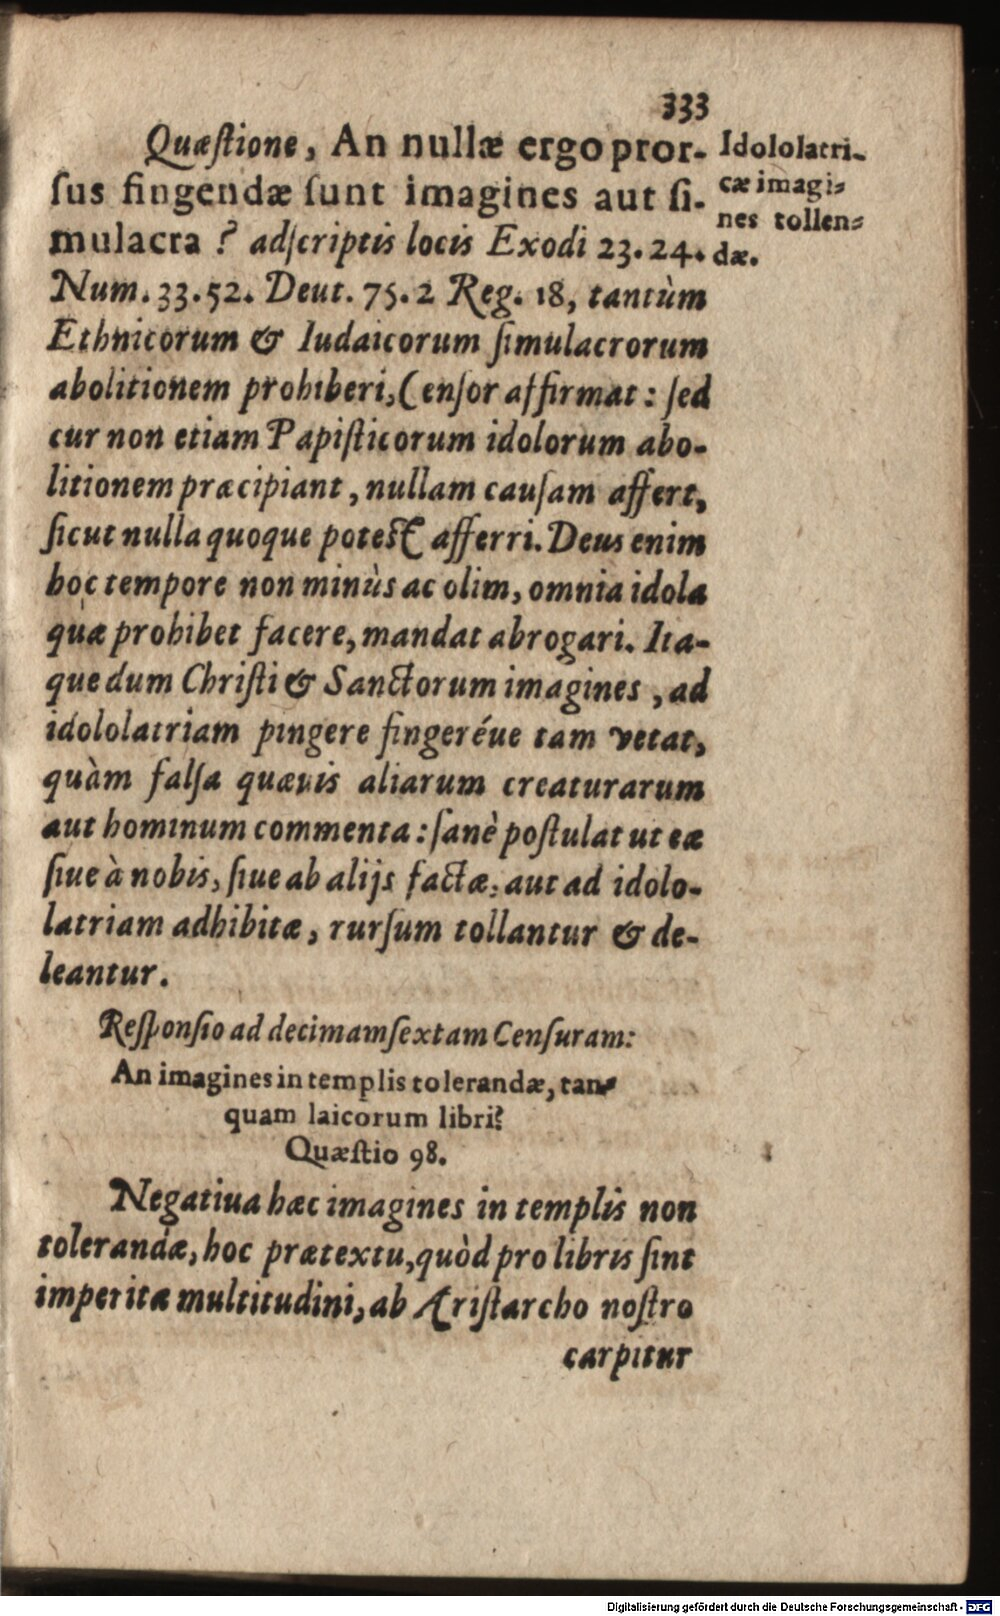 333
Quæſtione, An nullæ ergo pror-
ſus fingendæ ſunt imagines aut ſi-
mulacra? adſcriptis locis Exodi 23.24.
Num. 33.52. Deut. 75.2 Reg. 18, tantùm
Ethnicorum & Iudaicorum ſimulacrorum
abolitionem prohiberi, Cenſor affirmat: ſed
cur non etiam Papiſticorum idolorum abo-
litionem præcipiant, nullam cauſam affert,
ſicut nulla quoque poteſt afferri. Deus enim
hoc tempore non minùs ac olim, omnia idola
quæ prohibet facere, mandat abrogari. Ita-
que dum Chriſti & Sanctorum imagines, ad
idololatriam pingere fingeréue tam vetat,
quàm falſa quævis aliarum creaturarum
aut hominum commenta: ſanè poſtulat ut eæ
ſiue à nobis, ſiue ab alijs factæ, aut ad idolo-
latriam adhibitæ, rurſum tollantur & de-
leantur.
Idololatri-
cæ imagi-
nes tollen-
dæ.
Reſponſio ad decimamſextam Cenſuram:
An imagines in templis tolerandæ, tan-
quam laicorum libri?
Quæſtio 98.
Negatiua hæc imagines in templis non
tolerandæ, hoc prætextu, quòd pro libris ſint
imperitæ multitudini, ab Ariſtarcho noſtro
carpitur
Digitalisierung gefördert durch die Deutsche Forschungsgemeinschaft - DFG